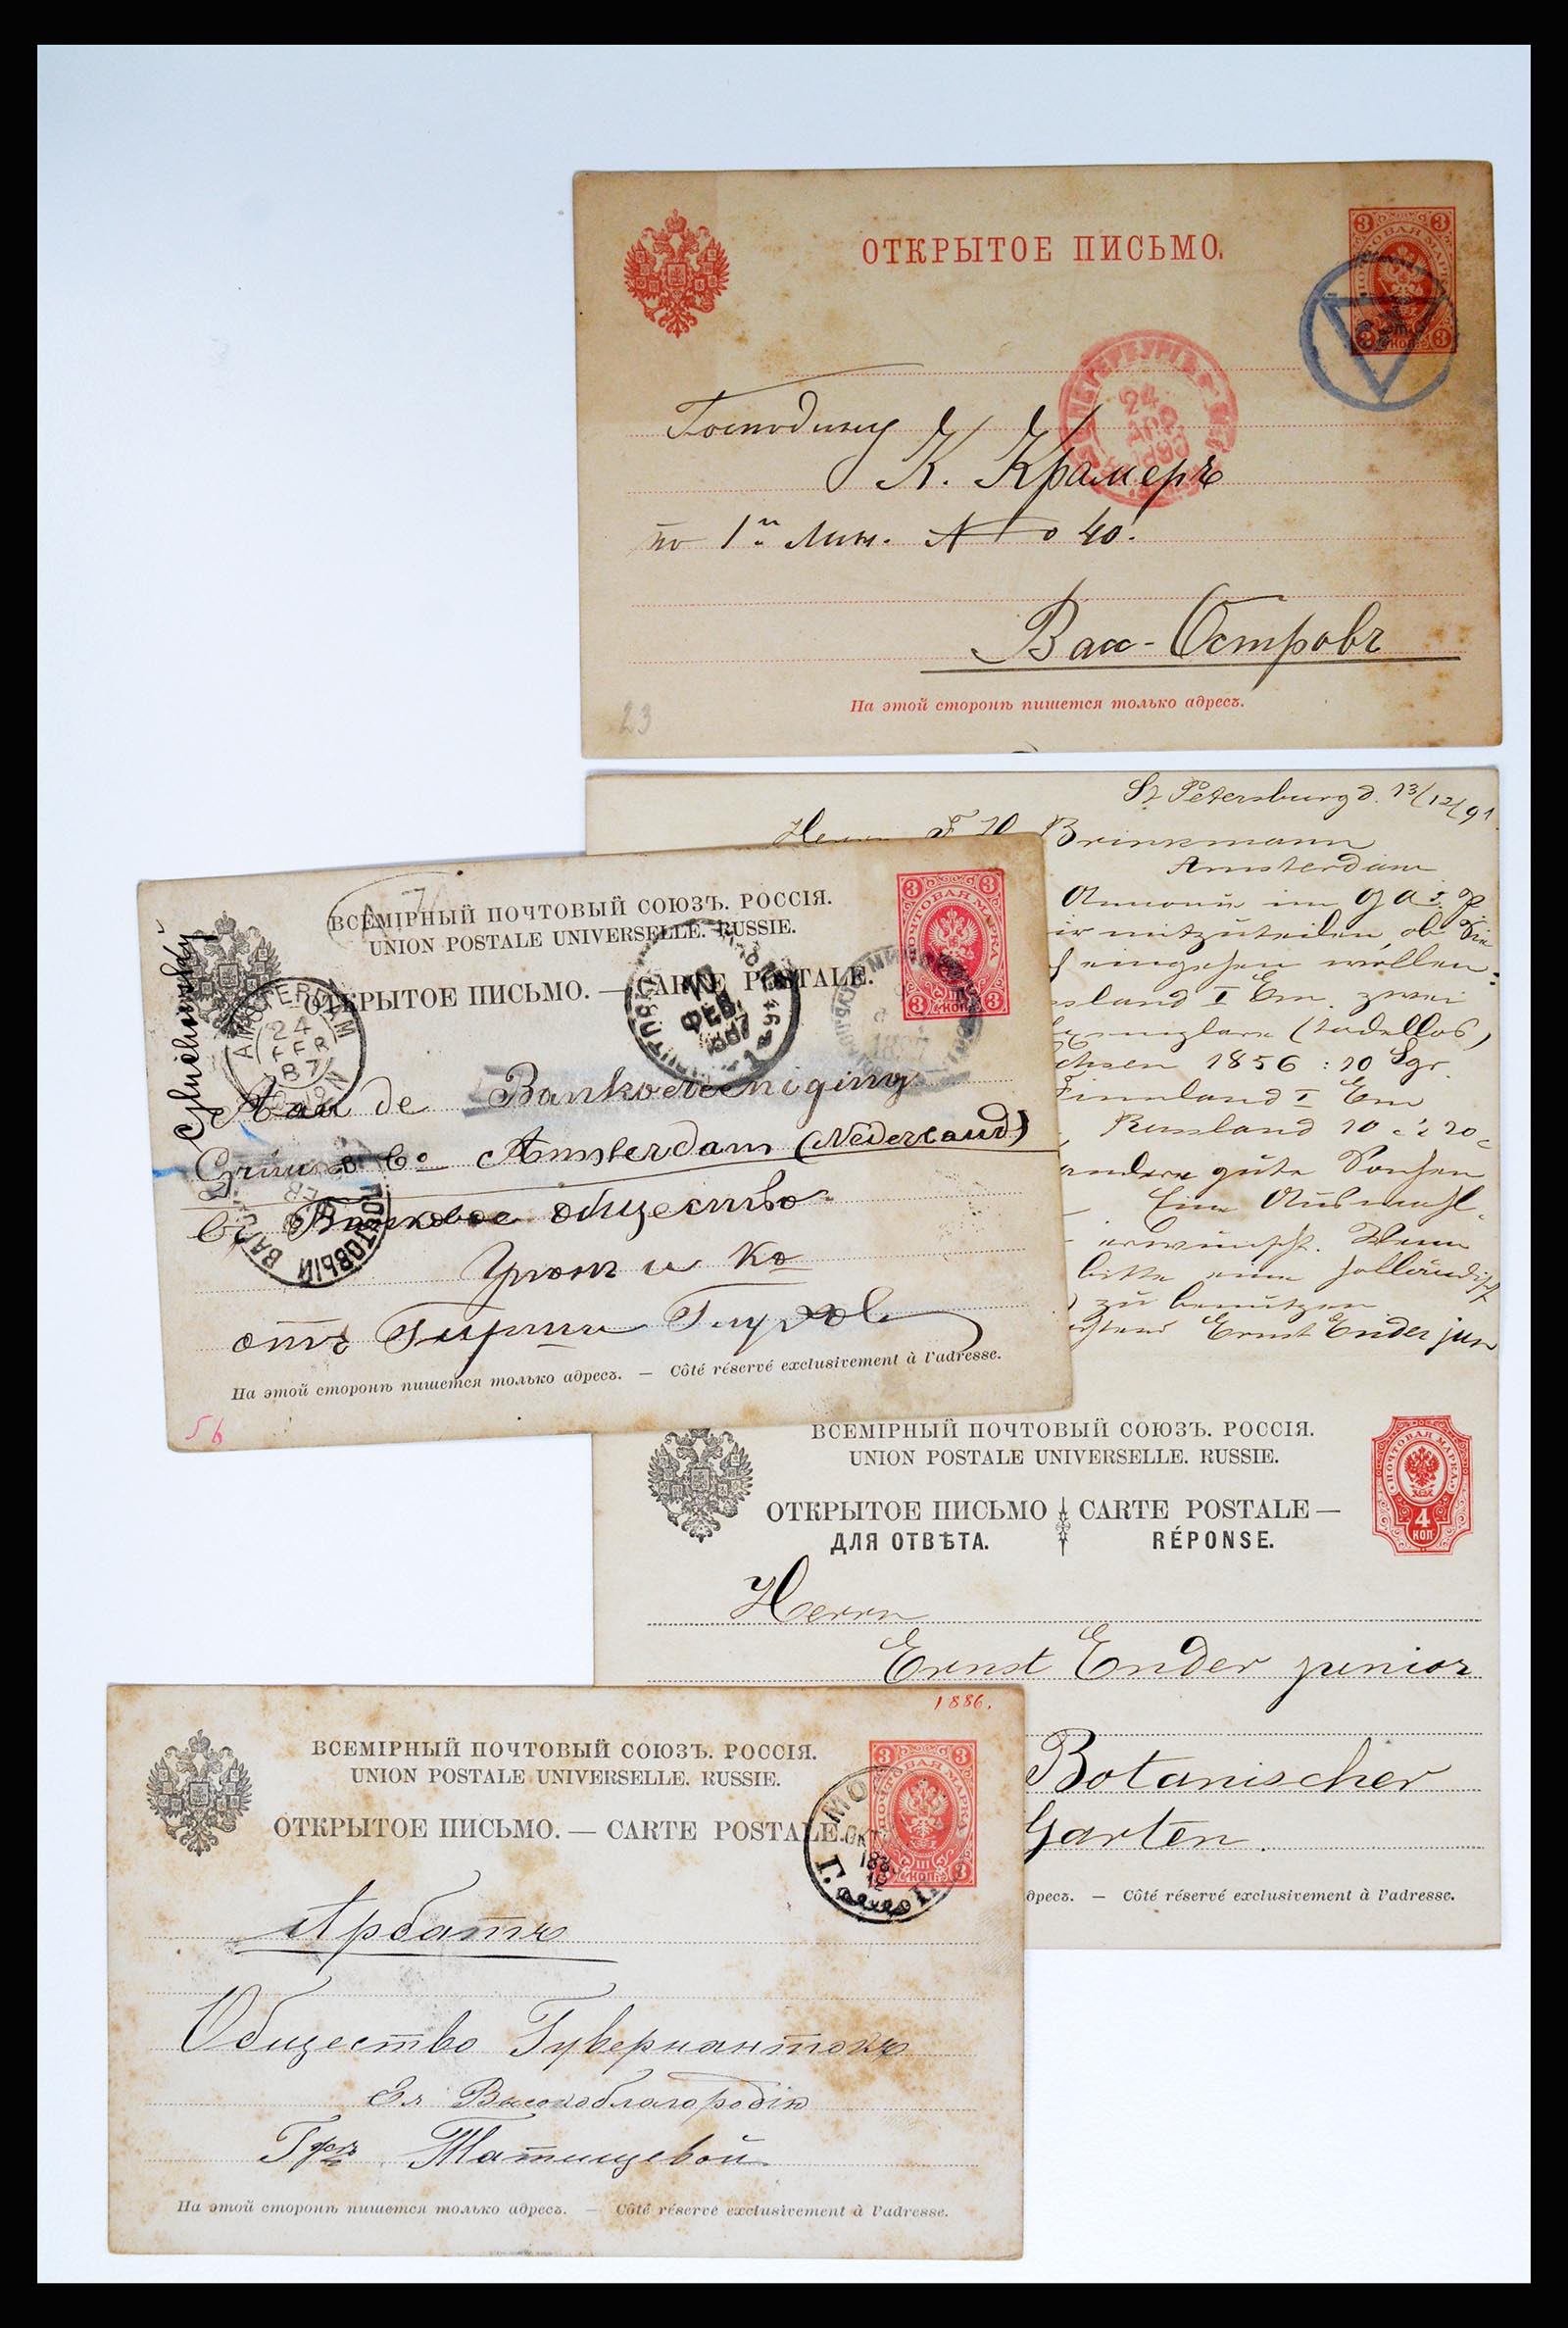 ОТКРЫТОЕ ПИСЬМО.
3 3
ПОЧТОВАЯ МАРКА
3 КОП. 3
24
АПР
Господину
К. Крамеръ
по 1й Лин. № 40.
Вас-Островъ
На этой сторонѣ пишется только адресъ.
23
St Petersburg d. 13/12/91
Herrn F H Brinkmann
Amsterdam
Annonce im
mitzuteilen, ob Sie
eingehen wollen:
sland I Em. zwei
(tadellos)
chsen 1856 : 10 Sgr.
Finnland I Em
Russland 10 20
andere gute Sachen
Eine Auswahl
erwünscht. Wenn
bitte eine holländisch
zu benutzen
Ernst Ender jun
ВСЕМІРНЫЙ ПОЧТОВЫЙ СОЮЗЪ. РОССІЯ.
UNION POSTALE UNIVERSELLE. RUSSIE.
ОТКРЫТОЕ ПИСЬМО. — CARTE POSTALE.
3 3
ПОЧТОВАЯ МАРКА
3 КОП. 3
AMSTERDAM
24
FEB
87
10
ФЕВ
1887
Aan de Bankvereeniging
Grün & Co Amsterdam (Nederland)
Въ Банковое общество
Грюнъ и Ко
отъ Глухов
ПОЧТОВЫЙ ВАГОНЪ
На этой сторонѣ пишется только адресъ. — Côté réservé exclusivement à l'adresse.
56
ВСЕМІРНЫЙ ПОЧТОВЫЙ СОЮЗЪ. РОССІЯ.
UNION POSTALE UNIVERSELLE. RUSSIE.
ОТКРЫТОЕ ПИСЬМО CARTE POSTALE —
ДЛЯ ОТВѢТА. RÉPONSE.
ПОЧТОВАЯ МАРКА
4
КОП
Herrn
Ernst Ender junior
Botanischer
Garten.
дресъ. — Côté réservé exclusivement à l'adresse.
1886.
ВСЕМІРНЫЙ ПОЧТОВЫЙ СОЮЗЪ. РОССІЯ.
UNION POSTALE UNIVERSELLE. RUSSIE.
ОТКРЫТОЕ ПИСЬМО. — CARTE POSTALE.
3 3
ПОЧТОВАЯ МАРКА
III
3 КОП. 3
Арбатъ
Общество Гувернантокъ
Ея Высокоблагородію
Гржѣ Татищевой.
На этой сторонѣ пишется только адресъ. — Côté réservé exclusivement à l'adresse.